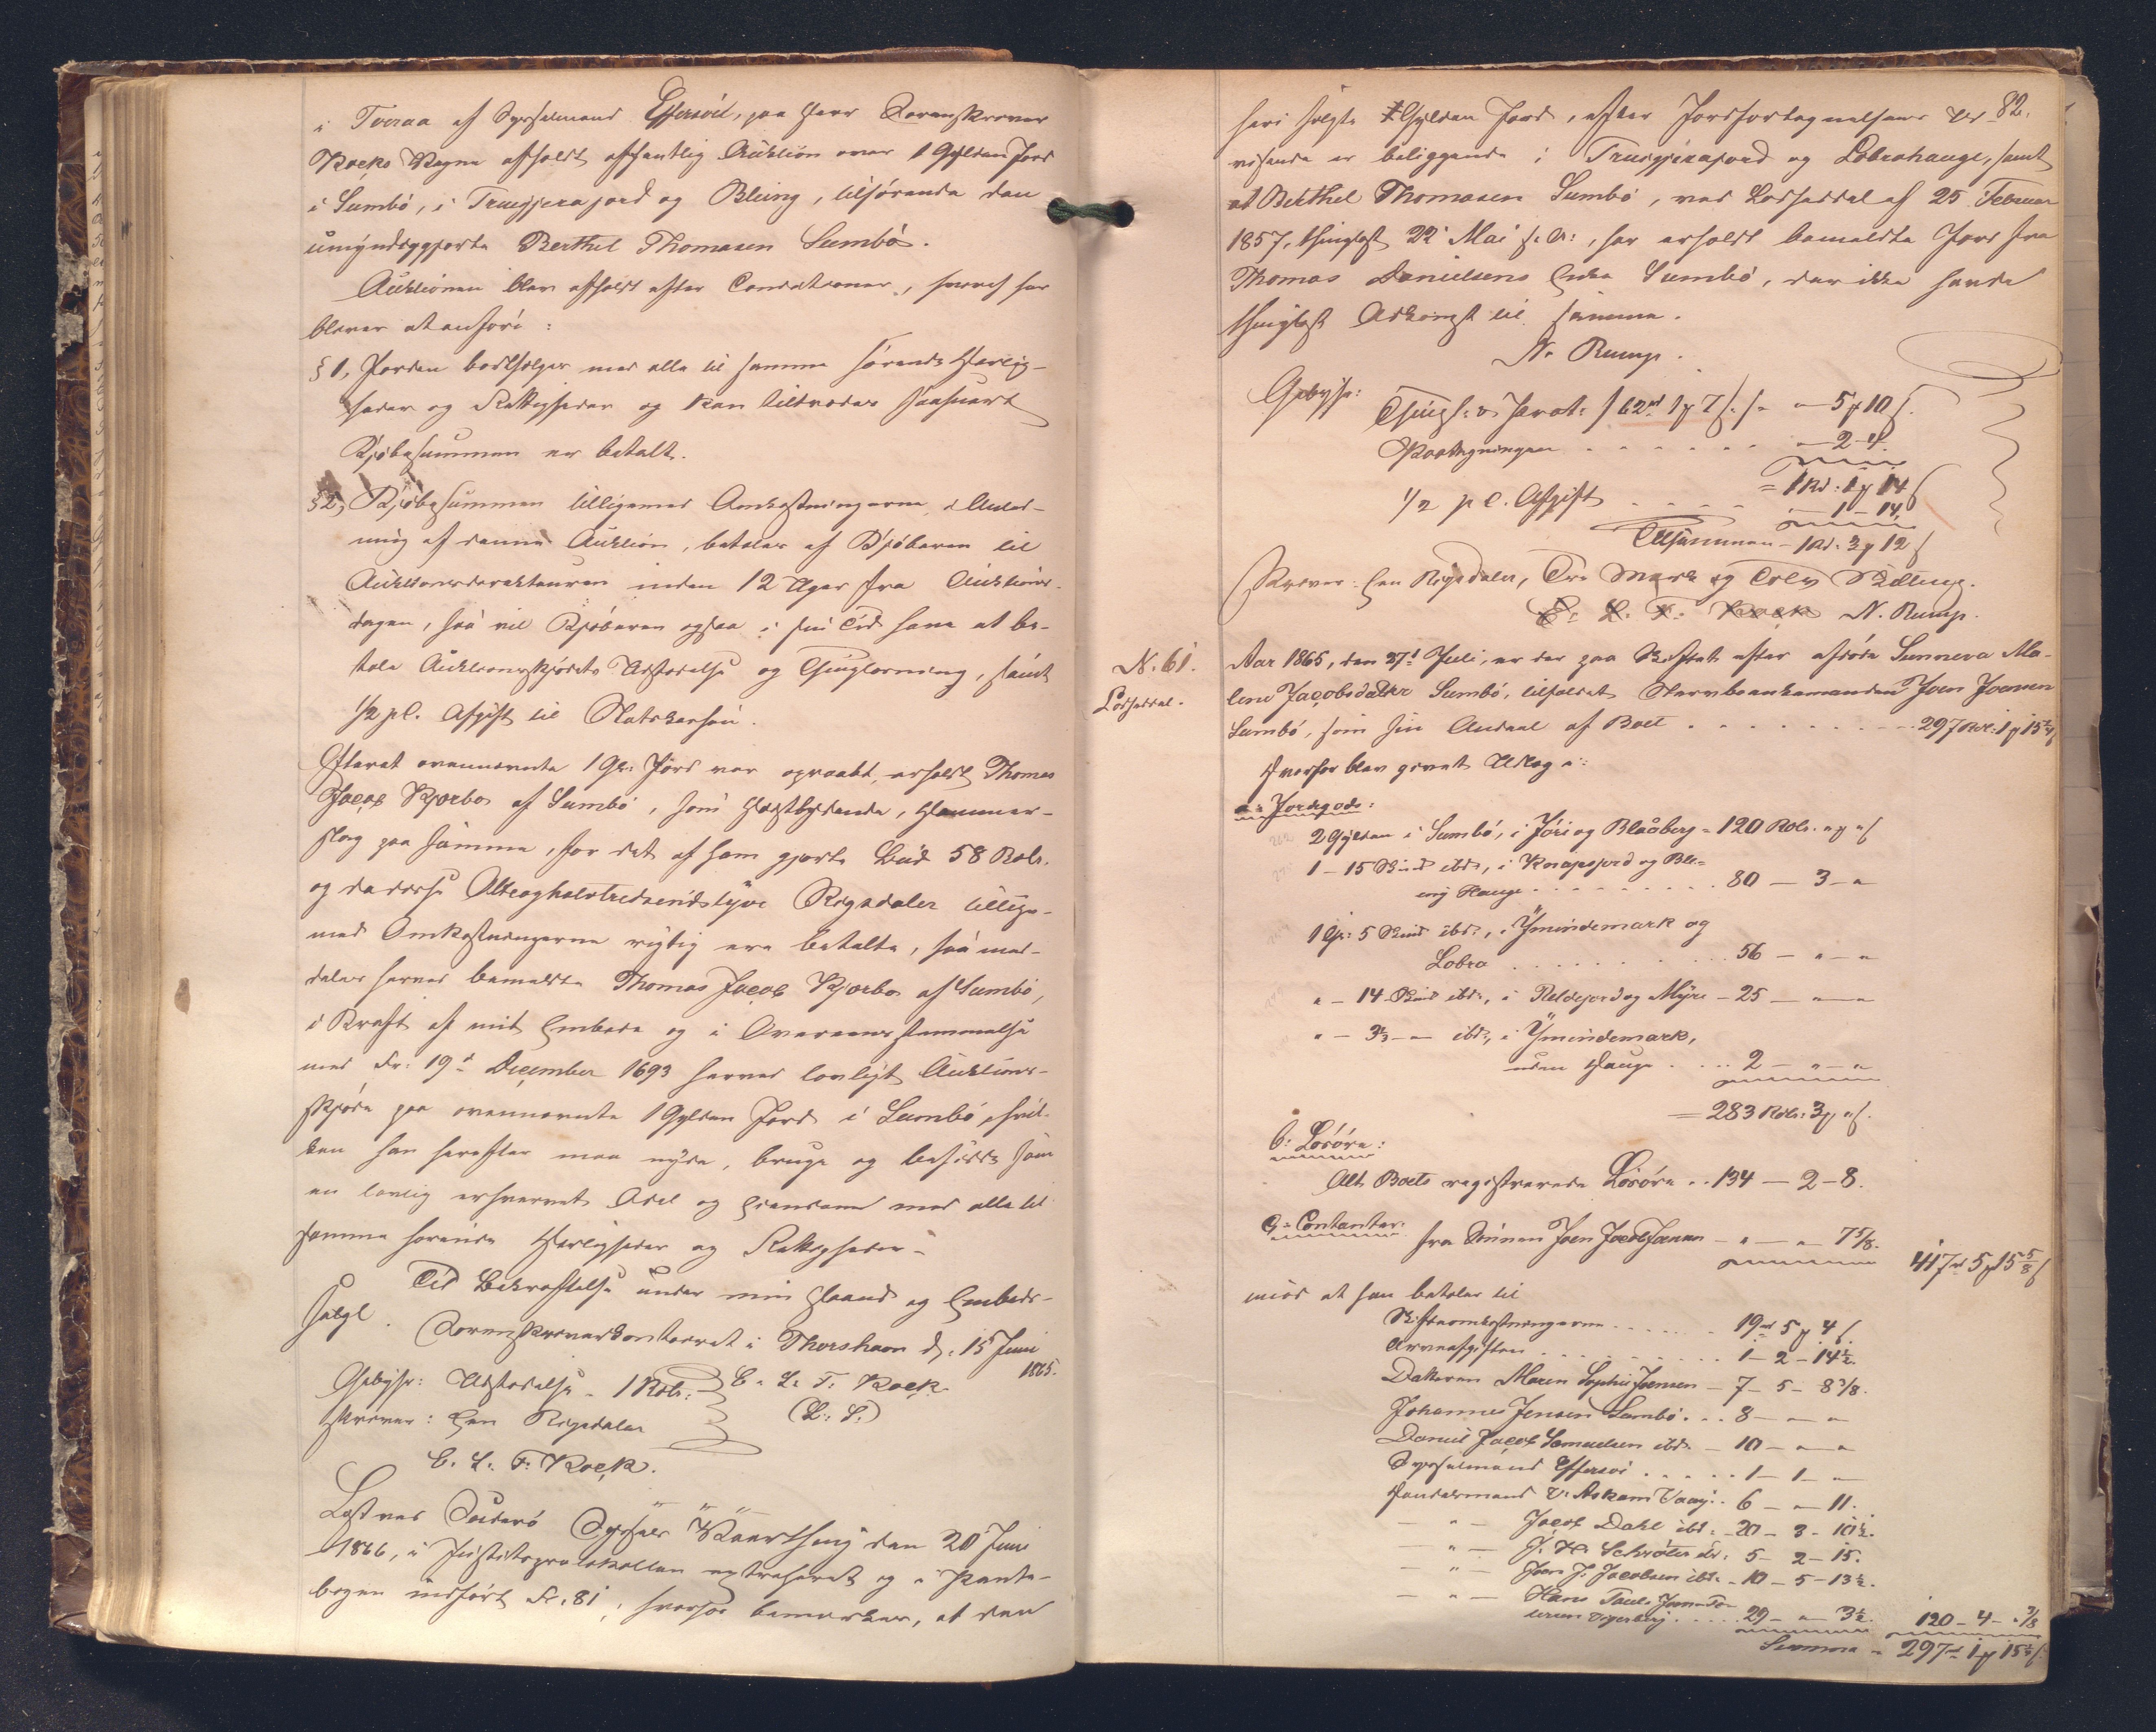 i Tveraa af Sysselmand Effersöe, paa Herr Sorenskriver
Kocks Vegne afholdt offentlig Auktion over 1 Gylden Jord
i Sumbö, i Truigjerajord og Bleing, tilhörende den
umyndiggjorte Berthel Thomasen Sumbö.
Auktionen blev afholdt efter Conditioner, hvoraf her
bliver at anföre:
§ 1, Jorden bortsælges med alle til samme hörende Herlig-
heder og Rettigheder og kan tiltrædes saasnart
Kjöbesummen er betalt.
§ 2, Kjöbesummen tilligemed Omkostningerne i Anled-
ning af denne Auktion, betales af Kjöberen til
Auktionsdirekteuren inden 12 Uger fra Auktions-
dagen, saa vil Kjöberen ogsaa i sin Tid have at be-
tale Auktionsskjödets Udstedelse og Thinglæsning, samt
1/2 pC. Afgift til Statskassen.
Efterat ovennævnte 1 Gl: Jord var opraabt, erholdt Thomas
Jacob Kjærbo af Sumbö, som Höistbydende, Hammer-
slag paa samme, for det af ham gjorte Bud 58 Rdlr.
og da disse Otteoghalvtredsindstyve Rigsdaler tillige-
med Omkostningerne rigtig ere betalte, saa med-
deles herved bemeldte Thomas Jacob Kjærbo af Sumbö,
i Kraft af mit Embede og i Overeensstemmelse
med Fr: 19de December 1693 herved lovligt Auktions-
skjöde paa ovennævnte 1 Gylden Jord i Sumbö, hvil-
ken han herefter maa nyde, bruge og besidde som
en lovlig erhvervet Odel og Eiendom med alle til
samme hörende Herligheder og Rettigheder.
Til Bekræftelse under min Haand og Embeds-
segl. Sorenskriverkontoiret i Thorshavn d. 15 Juni
1865.
Gebyhr: Udstedelse - 1 Rdlr: E. L. T. Kock
skriver: Een Rigsdaler (L. S.)
E. L. T. Kock.
Læst ved Suderö Syssels Vaarthing den 20 Juni
1866, i Justitsprotokollen extraheret og i Pante-
bogen indfört Fol. 81; hvorhos bemærkes, at den
82.
heri solgte 1 Gylden Jord, efter Jordfortegnelsens Ud-
visende er beliggende i Truigjerajord og Lobrahauge, samt
at Berthel Thomasen Sumbö, ved Lodseddel af 25 Februar
1857, thinglæst 22 Mai s. A., har erholdt bemeldte Jord fra
Thomas Danielsens Enke Sumbö, der ikke havde
thinglæst Adkomst til samme.
N. Rump.
Gebyhr:
Thingl: o. Prot: / 62rd 1 ȝ 7 s. / - " - 5 ȝ 10 s.
Paategningen . . . . . . - 2 - 4.
= 1 Rd: 1 ȝ 14 s
1/2 pC. Afgift . . . . - 1 - 14
Tilsammen - 1 Rd. 3 ȝ 12 s
skriver: Een Rigsdaler, Tre Mark og Tolv Skilling.
E. L. T. Kock N. Rump.
N. 61.
Lodseddel.
Aar 1865, den 27d Juli, er der paa Skiftet efter afdöde Sunneva Ma-
lene Jacobsdatter Sumbö, tilfaldet Stervboenkemanden Joen Joensen
Sumbö, som sin Andeel af Boet . . . . . . . . 297 Rdl: 1 ȝ 15 1/4 s
Hvorfor blev gjort Udlæg i:
a: Jordegods:
2 Gylden i Sumbö, i Jöri og Blaaberg - 120 Rdlr. " ȝ " s
1 - 15 Skind ibd., i Knapsjord og Ble-
ing Hauge . . . . . . . . . 80 - 3 - "
1 Gl: 5 Skind ibd., i Ymindemark og
Lobra . . . . . . . . . 56 - " - "
" - 14 Skind ibd., i Reldejord og Myre - 25 - " - "
" - 3 1/3 - " ibd., i Ymindemark,
uden Hauge . . . . 2 - " - "
= 283 Rdlr: 3 ȝ " s.
b: Lösöre:
Alt Boets registrerede Lösöre . . 134 - 2 - 8.
c: Contanter:
fra Sönnen Joen Jacob Joensen - " - " - 7 5/8.
417rd 5 ȝ 15 5/8 s
imod at han betaler til
Skifteomkostningerne . . . . . 19rd 5 ȝ 4 s.
Arveafgiften . . . . . . . . . 1 - 2 - 14 1/2.
Datteren Maren Sophie Joensen - 7 - 5 - 8 3/8.
Johannes Jensen Sumbö . . . 8 - " - "
Daniel Jacob Samuelsen ibd. - 10 - " - "
Sysselmand Effersöe . . . . . 1 - 1 - "
Handelsmand V. Askam Vaag . . 6 - " - 11.
- " - Jacob Dahl ibd: - 20 - 3 - 10 1/2.
- " - J. H. Schröter ibd. 5 - 2 - 15.
- " - Joen J. Jacobsen ibd. - 10 - 5 - 13 1/2.
- " - Hans Paule Joensen
. . . . 29 - " - 3 1/2. 120 - 4 - " 3/8
Summa - 297rd 1 ȝ 15 1/4 s